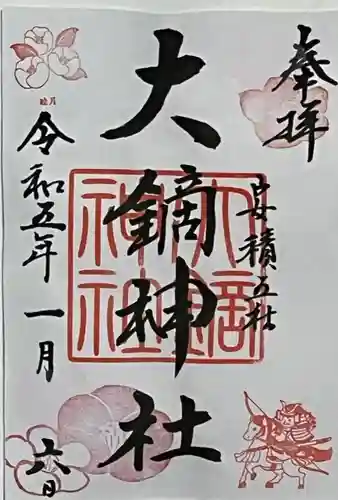 奉拝
安積五社
大鏑神社
大鏑
神社
睦月
令和五年一月
六日